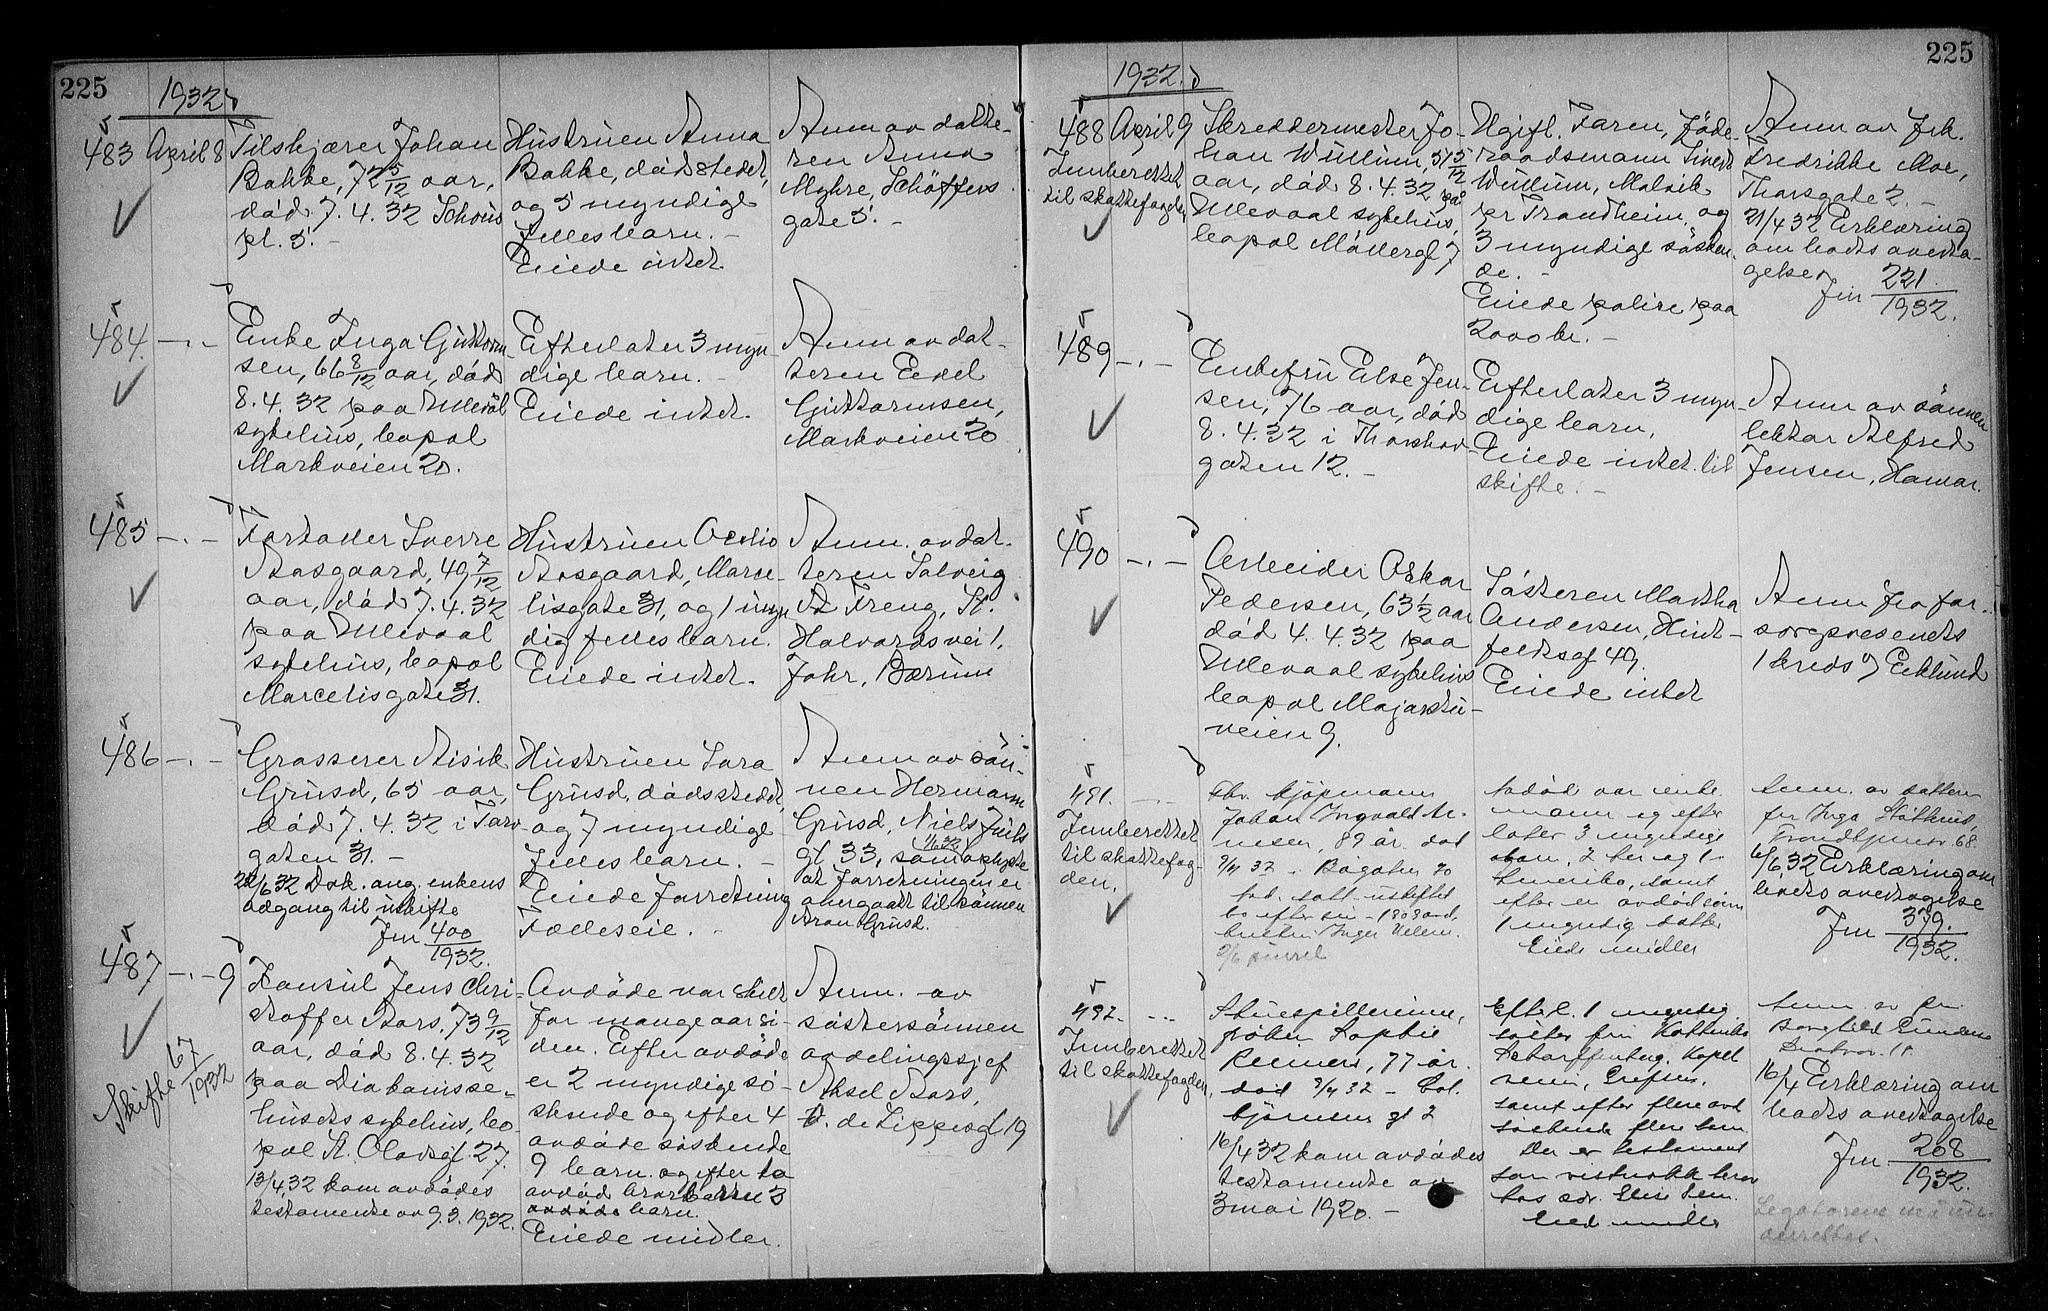 225
1932
483 April 8
Tilskjærer Johan
Bakke, 72 5/12 aar,
död 7.4.32 Schous
pl. 5. -
Hustruen Anna
Bakke, dödsstedet,
og 5 myndige
felles barn. -
Eiede intet.
Anm av datte-
ren Anna
Myhre, Schöffers
gate 5. -
484. -.-
Enke Inga Guttorm-
sen, 66 8/12 aar, död
8.4.32 paa Ullevål
sykehus, bopol
Markveien 20.
Efterlater 3 myn-
dige barn. -
Eiede intet.
Anm av dat-
teren
Guttormsen,
Markveien 20
485 -.-
Sverre
Aasgaard, 49 7/12
aar, död 7.4.32
paa Ullevaal
sykehus, bopol
Marcelisgate 31.
Hustruen
Aasgaard, Marce-
lisgate 31, og 1 myn
dig felles barn.
Eiede intet.
Anm. av dat-
teren Solveig
Freng, St.
Halvards vei 1,
Jahr, Bærum
486 -.-
Grosserer Aisik
Grusd, 65 aar,
död 7.4.32 i Torv
gaten 31. -
22/6 32 Dok. ang. enkens
adgang til uskifte
Jm 400/1932.
Hustruen Sara
Grusd, dödsstedet,
og 7 myndige
felles barn. -
Eiede forretning
Fælleseie. -
Anm av sön-
nen Hermann
Grusd, Niels Juels
gt 33, som oplyste
at forretningen er
overgaatt til sönnen
Aron Grusd.
487 -.- 9
Skifte 67/1932
Konsul Jens Chri-
stoffer Aars, 73 9/12
aar, död 8.4.32
paa Diakonisse-
husets sykehus, bo-
pol St. Olavsgt. 27.
13/4 32 kom avdödes
testamente av 9.3.1932.
Avdöde var skilt
for mange aar si-
den. Efter avdöde
er 2 myndige sö-
skende og efter 4
avdöde söskende
9 barn og efter to
avdöd 3
avdöde barn.
Eiede midler.
Anm. av
söstersönnen
avdelingssjef
Aksel Aars,
de Lippesgt 19
225
1932.
488 April 9
Innberettet
til skattefogden
Skreddermester Jo-
han Wullum, 51 5/12
aar, död 8.4.32 på
Ullevaal sykehus,
bopol Möllergt 7
Ugift. Faren, föde-
raadsmann Sivert
Wullum, Malvik
pr Trondheim, og
3 myndige sösken-
de. -
Eiede polise paa
2000 kr. -
Anm av frk.
Fredrikke Moe,
Thorsgate 2. -
21/4 32 Erklæring
om boets overta-
gelse.
Jm 221/1932.
489 -.-
Enkefru Else Jen-
sen, 76 aar, död
8.4.32 i Thorshov-
gaten 12. -
Efterlater 3 myn-
dige barn,
Eiede intet til
skifte. -
Anm av sönnen
lektor Alfred
Jensen, Hamar.
490 -.-
Arbeider Oskar
Pedersen, 63 1/2 aar
död 4.4.32 paa
Ullevaal sykehus
bopol Majorstu-
veien 9.
Södsteren Martha
Andersen,
49.
Eiede intet
Anm fra for-
sorgsvesenets
1 kreds v/ Eklund
491. -.-
Innberettet
til skattefog-
den.
Fhv. kjöpmann
Johan Ingvald Ar-
nesen, 89 år, död
9/4 32
Avdöd var enke
mann og efter
later 3 myndige
barn, 2 her og 1 i
Amerika, samt
efter en avdöd
1 myndig datter
Eiede midler
Anm. av datteren
fru Inga
Trondhjemsv. 68.
6/6 32 Erklæring om
boets overtagelse
Jm 379./1932.
492. -.-
Innberettet
til skattefogden.
Skuespillerinne,
fröken Sophie
Reimers, 77 år.
död 9/4 32 -
gt 2
16/4 32 kom avdödes
testamente av
3 mai 1920. -
Efterl. 1 myndig
söster fru
Scharffenberg,
Grefsen,
samt efter flere avd
söskende flere barn.
Der er testament
Eied midler
16/4 Erklæring om
boets overtagelse
Jm 208/1932.
Legatarene må un-
derrettes.